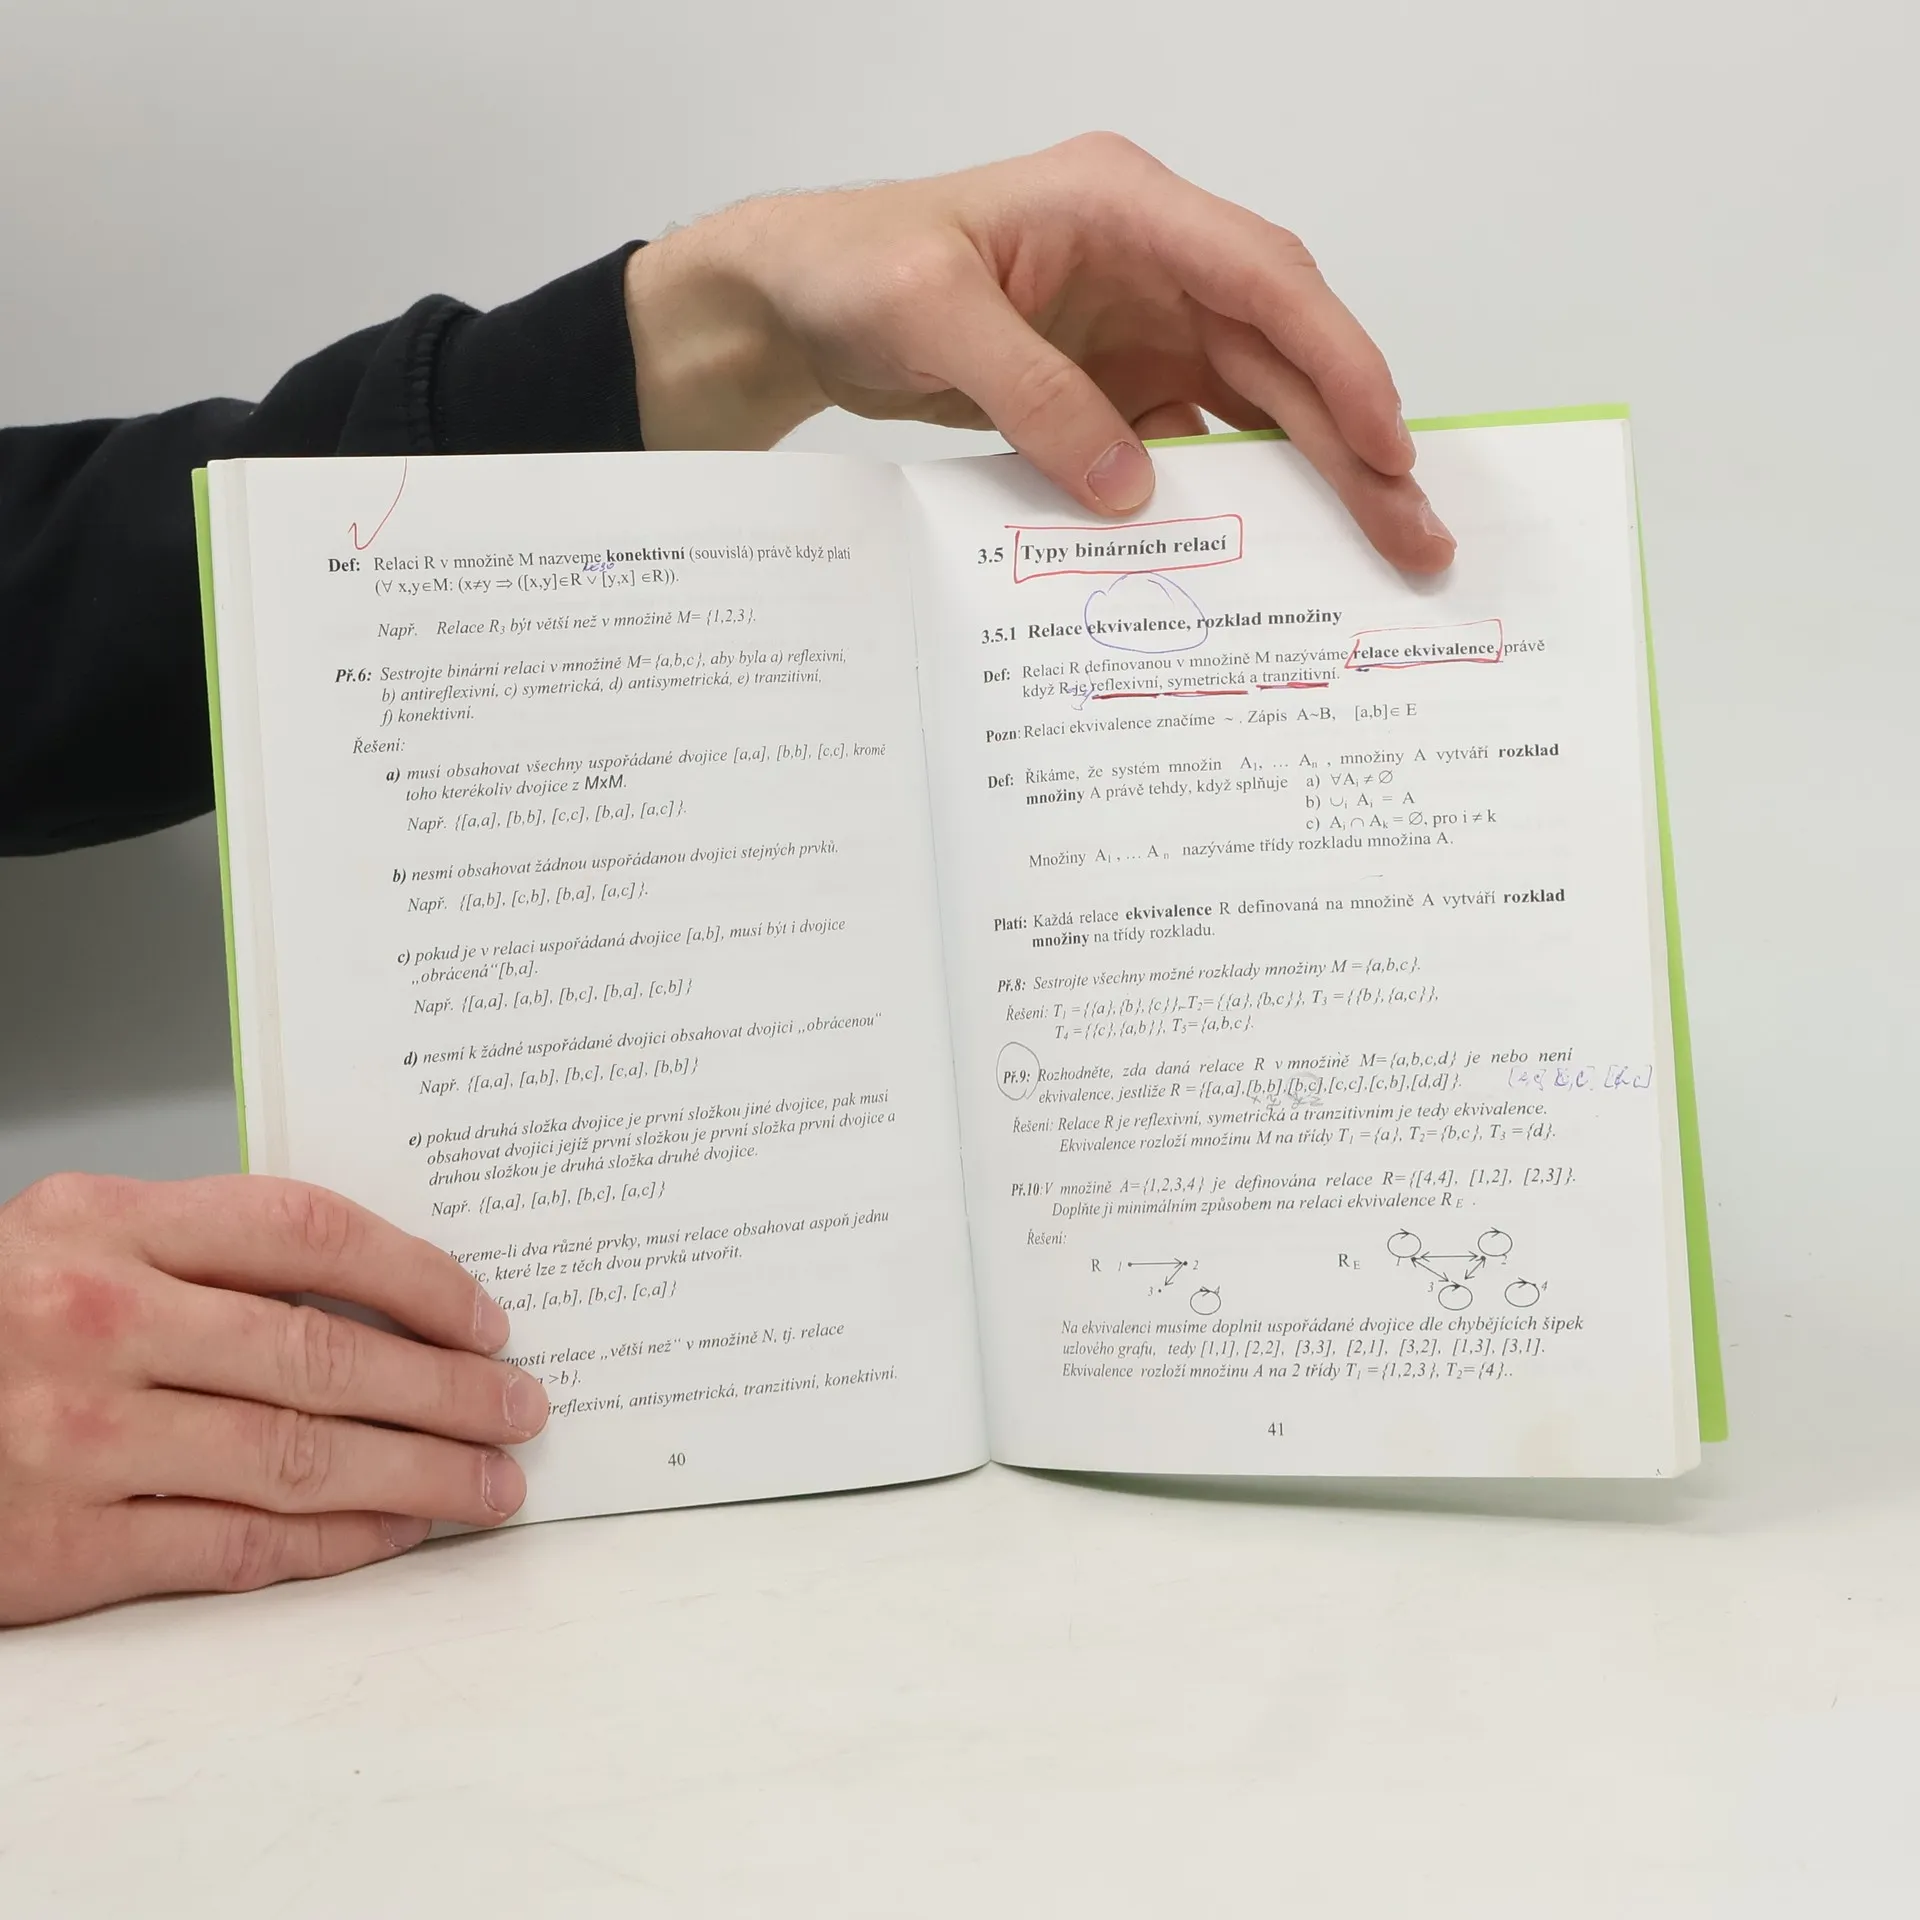 Def: Relaci R v množině M nazveme konektivní (souvislá) právě když platí
(∀ x,y∈M: (x≠y ⇒ ([x,y]∈R ∨ [y,x] ∈R)).
Např. Relace R₃ být větší než v množině M= {1,2,3}.
Př.6: Sestrojte binární relaci v množině M={a,b,c}, aby byla a) reflexivní,
b) antireflexivní, c) symetrická, d) antisymetrická, e) tranzitivní,
f) konektivní.
Řešení:
a) musí obsahovat všechny uspořádané dvojice [a,a], [b,b], [c,c], kromě
toho kterékoliv dvojice z MxM.
Např. {[a,a], [b,b], [c,c], [b,a], [a,c]}.
b) nesmí obsahovat žádnou uspořádanou dvojici stejných prvků.
Např. {[a,b], [c,b], [b,a], [a,c]}.
c) pokud je v relaci uspořádaná dvojice [a,b], musí být i dvojice
„obrácená“[b,a].
Např. {[a,a], [a,b], [b,c], [b,a], [c,b]}
d) nesmí k žádné uspořádané dvojici obsahovat dvojici „obrácenou“
Např. {[a,a], [a,b], [b,c], [c,a], [b,b]}
e) pokud druhá složka dvojice je první složkou jiné dvojice, pak musí
obsahovat dvojici jejíž první složkou je první složka první dvojice a
druhou složkou je druhá složka druhé dvojice.
Např. {[a,a], [a,b], [b,c], [a,c]}
bereme-li dva různé prvky, musí relace obsahovat aspoň jednu
ic, které lze z těch dvou prvků utvořit.
[a,a], [a,b], [b,c], [c,a]}
tnosti relace „větší než“ v množině N, tj. relace
a >b}.
ireflexivní, antisymetrická, tranzitivní, konektivní.
40
3.5 Typy binárních relací
3.5.1 Relace ekvivalence, rozklad množiny
Def: Relaci R definovanou v množině M nazýváme relace ekvivalence, právě
když R je reflexivní, symetrická a tranzitivní.
Pozn: Relaci ekvivalence značíme ~ . Zápis A~B, [a,b]∈ E
Def: Říkáme, že systém množin A₁, … Aₙ , množiny A vytváří rozklad
množiny A právě tehdy, když splňuje a) ∀Aᵢ ≠ ∅
b) ∪ᵢ Aᵢ = A
c) Aᵢ ∩ Aₖ = ∅, pro i ≠ k
Množiny A₁ , … Aₙ nazýváme třídy rozkladu množina A.
Platí: Každá relace ekvivalence R definovaná na množině A vytváří rozklad
množiny na třídy rozkladu.
Př.8: Sestrojte všechny možné rozklady množiny M ={a,b,c}.
Řešení: T₁ ={{a},{b},{c}}, T₂={{a},{b,c}}, T₃ ={{b},{a,c}},
T₄ ={{c},{a,b}}, T₅={a,b,c}.
Př.9: Rozhodněte, zda daná relace R v množině M={a,b,c,d} je nebo není
ekvivalence, jestliže R ={[a,a],[b,b],[b,c],[c,c],[c,b],[d,d]}.
Řešení: Relace R je reflexivní, symetrická a tranzitivním je tedy ekvivalence.
Ekvivalence rozloží množinu M na třídy T₁ ={a}, T₂={b,c}, T₃ ={d}.
Př.10:V množině A={1,2,3,4} je definována relace R={[4,4], [1,2], [2,3]}.
Doplňte ji minimálním způsobem na relaci ekvivalence R_E .
Řešení:
R 1 2 3 4
R_E 1 2 3 4
Na ekvivalenci musíme doplnit uspořádané dvojice dle chybějících šipek
uzlového grafu, tedy [1,1], [2,2], [3,3], [2,1], [3,2], [1,3], [3,1].
Ekvivalence rozloží množinu A na 2 třídy T₁ ={1,2,3}, T₂={4}..
41